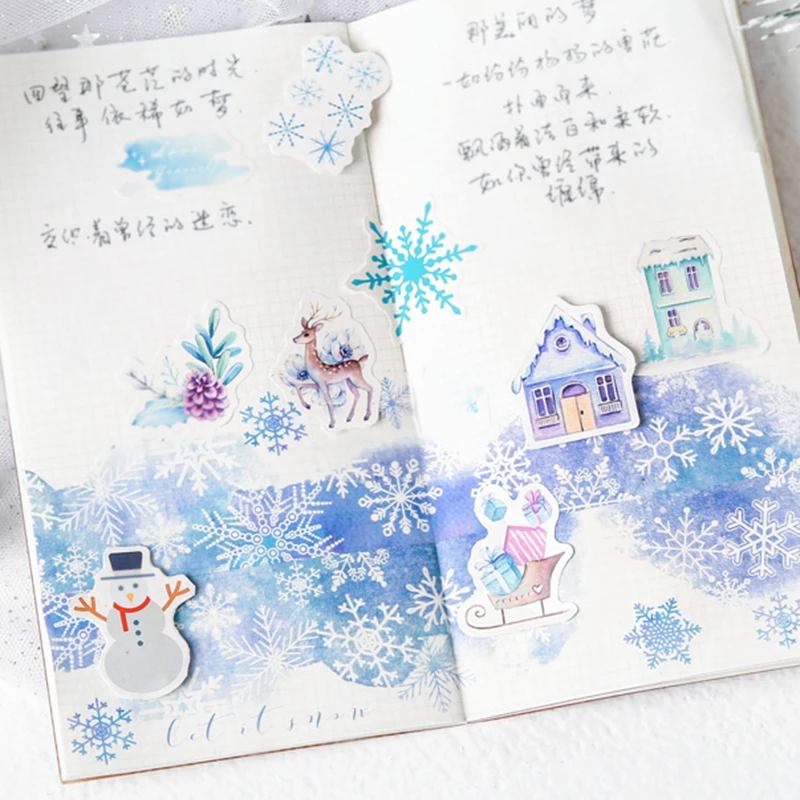 回望那苍茫的时光.
往事依稀如梦.
交织着曾经的迷恋.
那美丽的梦
一如纷纷扬扬的雪花
扑面而来.
飘洒着洁白和柔软.
如你曾经带来的
缠绵.
let it snow